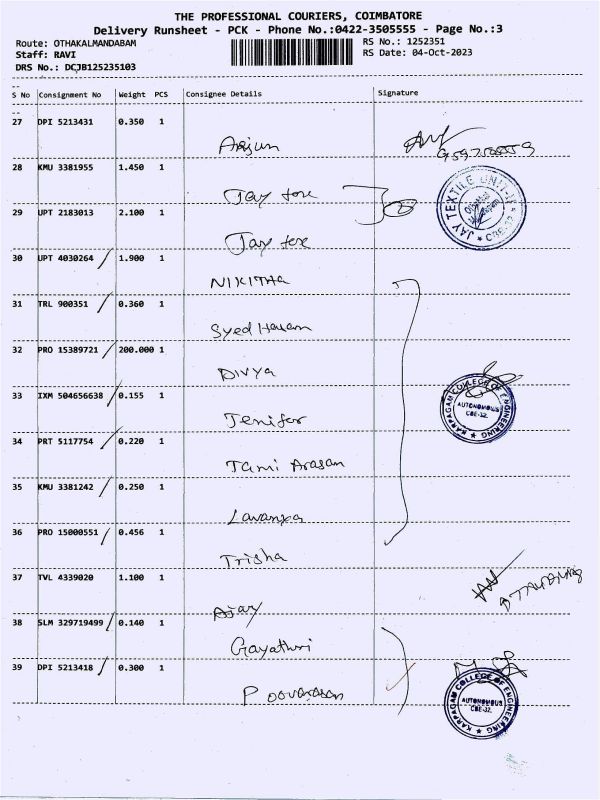 THE PROFESSIONAL COURIERS, COIMBATORE
Delivery Runsheet - PCK - Phone No.:0422-3505555 - Page No.:3
Route: OTHAKALMANDABAM RS No.: 1252351
Staff: RAVI RS Date: 04-Oct-2023
DRS No.: DCJB125235103
S No Consignment No Weight PCS Consignee Details Signature
27 DPI 5213431 0.350 1
Arjun
28 KMU 3381955 1.450 1
Jay tex
29 UPT 2183013 2.100 1
Jay tex
JAY TEXTILE UNIT-II
30 UPT 4030264 1.900 1
NIKITHA
31 TRL 900351 0.360 1
Syed Hasan
32 PRO 15389721 200.000 1
DIVYA
33 IXM 504656638 0.155 1
Jenifer
KARPAGAM COLLEGE OF ENGINEERING
AUTONOMOUS
CBE-32.
34 PRT 5117754 0.220 1
Tami Arasan
35 KMU 3381242 0.250 1
Lavanya
36 PRO 15000551 0.456 1
Trisha
37 TVL 4339020 1.100 1
Ajay
38 SLM 329719499 0.140 1
Gayathri
39 DPI 5213418 0.300 1
Poovarasan
KARPAGAM COLLEGE OF ENGINEERING
AUTONOMOUS
CBE-32.